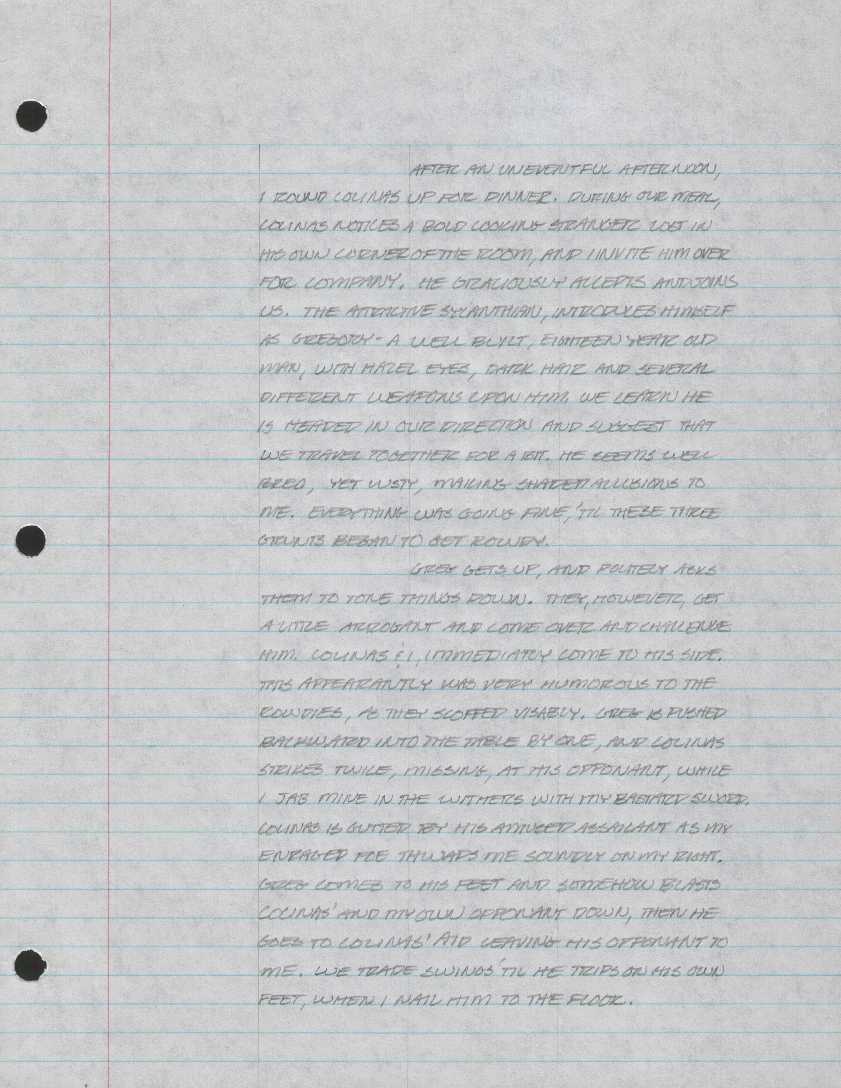 AFTER AN UNEVENTFUL AFTERNOON,
I ROUND COLINAS UP FOR DINNER. DURING OUR MEAL,
COLINAS NOTICES A BOLD LOOKING STRANGER LOST IN
HIS OWN CORNER OF THE ROOM, AND I INVITE HIM OVER
FOR COMPANY. HE GRACIOUSLY ACCEPTS AND JOINS
US. THE ATTRACTIVE SYLANTHIAN, INTRODUCES HIMSELF
AS GREGORY - A WELL BUILT, EIGHTEEN YEAR OLD
MAN, WITH HAZEL EYES, DARK HAIR AND SEVERAL
DIFFERENT WEAPONS UPON HIM. WE LEARN HE
IS HEADED IN OUR DIRECTION AND SUGGEST THAT
WE TRAVEL TOGETHER FOR A BIT. HE SEEMS WELL
BRED, YET LUSTY, MAKING SHADED ALLUSIONS TO
ME. EVERYTHING WAS GOING FINE, 'TIL THESE THREE
GRUNTS BEGAN TO GET ROWDY.
GREG GETS UP, AND POLITELY ASKS
THEM TO TONE THINGS DOWN. THEY, HOWEVER, GET
A LITTLE ARROGANT AND COME OVER AND CHALLENGE
HIM. COLINAS & I, IMMEDIATLY COME TO HIS SIDE.
THIS APPEARANTLY WAS VERY HUMOROUS TO THE
ROWDIES, AS THEY SCOFFED VISABLY. GREG IS PUSHED
BACKWARD INTO THE TABLE BY ONE, AND COLINAS
STRIKES TWICE, MISSING, AT HIS OPPONANT, WHILE
I JAB MINE IN THE WITHERS WITH MY BASTARD SWORD.
COLINAS IS GUTTED BY HIS AMUSED ASSAILANT AS MY
ENRAGED FOE THWAPS ME SOUNDLY ON MY RIGHT.
GREG COMES TO HIS FEET AND SOMEHOW BLASTS
COLINAS' AND MY OWN OPPONANT DOWN, THEN HE
GOES TO COLINAS' AID LEAVING HIS OPPONANT TO
ME. WE TRADE SWINGS 'TIL HE TRIPS ON HIS OWN
FEET, WHEN I NAIL HIM TO THE FLOOR.